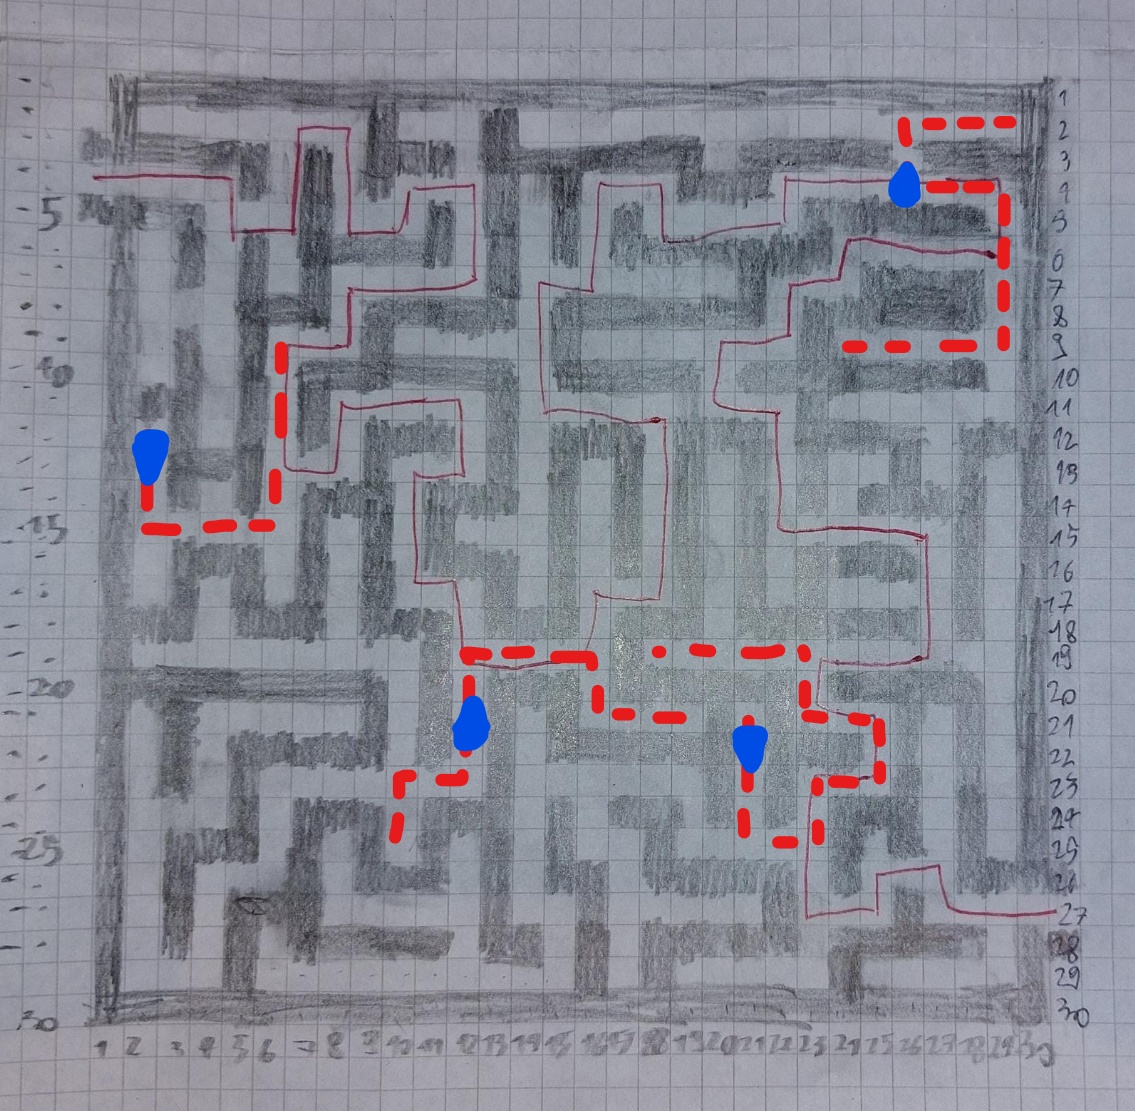 5
10
15
20
25
30
1
2
3
4
5
6
7
8
9
10
11
12
13
14
15
16
17
18
19
20
21
22
23
24
25
26
27
28
29
30
1 2 3 4 5 6 7 8 9 10 11 12 13 14 15 16 17 18 19 20 21 22 23 24 25 26 27 18 29 30